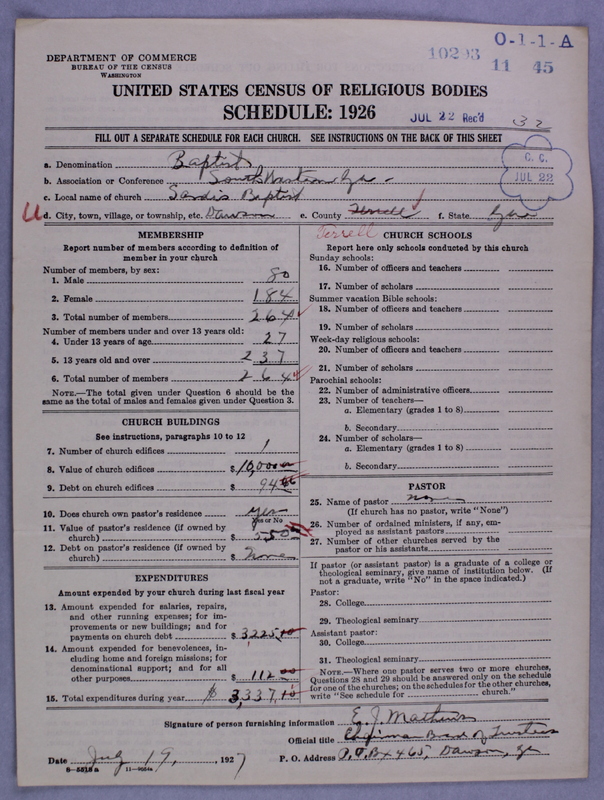 O-1-1-A
DEPARTMENT OF COMMERCE
BUREAU OF THE CENSUS
WASHINGTON
10293
11 45
UNITED STATES CENSUS OF RELIGIOUS BODIES
SCHEDULE: 1926
JUL 22 Rec'd
32
FILL OUT A SEPARATE SCHEDULE FOR EACH CHURCH. SEE INSTRUCTIONS ON THE BACK OF THIS SHEET
C. C.
JUL 22
a. Denomination Baptist
b. Association or Conference South Western Ga -
c. Local name of church Sardis Baptist
U d. City, town, village, or township, etc. Dawson e. County Terrell f. State Ga
Terrell
MEMBERSHIP
Report number of members according to definition of
member in your church
Number of members, by sex:
1. Male 80
2. Female 184
3. Total number of members 264
Number of members under and over 13 years old:
4. Under 13 years of age 27
5. 13 years old and over 237
6. Total number of members 264
NOTE.—The total given under Question 6 should be the
same as the total of males and females given under Question 3.
CHURCH BUILDINGS
See instructions, paragraphs 10 to 12
7. Number of church edifices 1
8. Value of church edifices $10,000
9. Debt on church edifices $ 94
10. Does church own pastor's residence yes
Yes or No
11. Value of pastor's residence (if owned by
church) $ 550
12. Debt on pastor's residence (if owned by
church) $ None
EXPENDITURES
Amount expended by your church during last fiscal year
13. Amount expended for salaries, repairs,
and other running expenses; for im-
provements or new buildings; and for
payments on church debt $ 3225.10
14. Amount expended for benevolences, in-
cluding home and foreign missions; for
denominational support; and for all
other purposes $ 112.00
15. Total expenditures during year $ 3,337.10
CHURCH SCHOOLS
Report here only schools conducted by this church
Sunday schools:
16. Number of officers and teachers
17. Number of scholars
Summer vacation Bible schools:
18. Number of officers and teachers
19. Number of scholars
Week-day religious schools:
20. Number of officers and teachers
21. Number of scholars
Parochial schools:
22. Number of administrative officers
23. Number of teachers—
a. Elementary (grades 1 to 8)
b. Secondary
24. Number of scholars—
a. Elementary (grades 1 to 8)
b. Secondary
PASTOR
25. Name of pastor None
(If church has no pastor, write "None")
26. Number of ordained ministers, if any, em-
ployed as assistant pastors
27. Number of other churches served by the
pastor or his assistants
If pastor (or assistant pastor) is a graduate of a college or
theological seminary, give name of institution below. (If
not a graduate, write "No" in the space indicated.)
Pastor:
28. College
29. Theological seminary
Assistant pastor:
30. College
31. Theological seminary
NOTE.—Where one pastor serves two or more churches,
Questions 28 and 29 should be answered only on the schedule
for one of the churches; on the schedules for the other churches,
write "See schedule for church."
Signature of person furnishing information E. J. Mathews
Official title Chairman Board of Trustees
Date July 19, 1927 P. O. Address P.O. Bx 465, Dawson, Ga
8-5518a 11-9084a